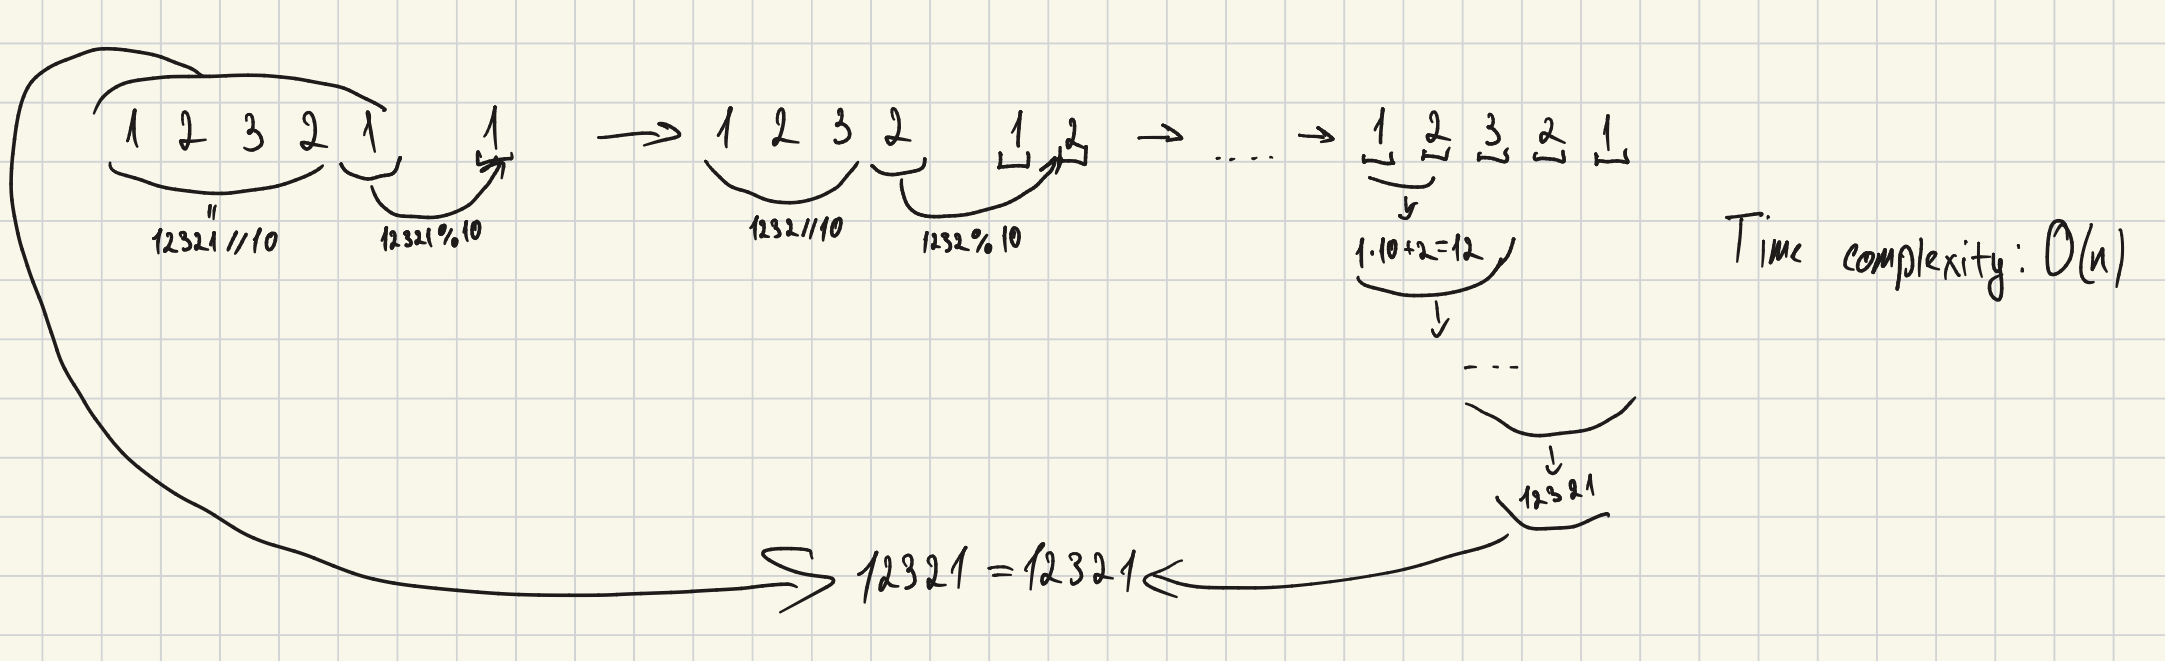 1 2 3 2 1 1 → 1 2 3 2 1 2 → ..... → 1 2 3 2 1
12321//10 12321%10 1232//10 1232%10 1·10+2=12
Time complexity: O(n)
----
12321
12321 = 12321